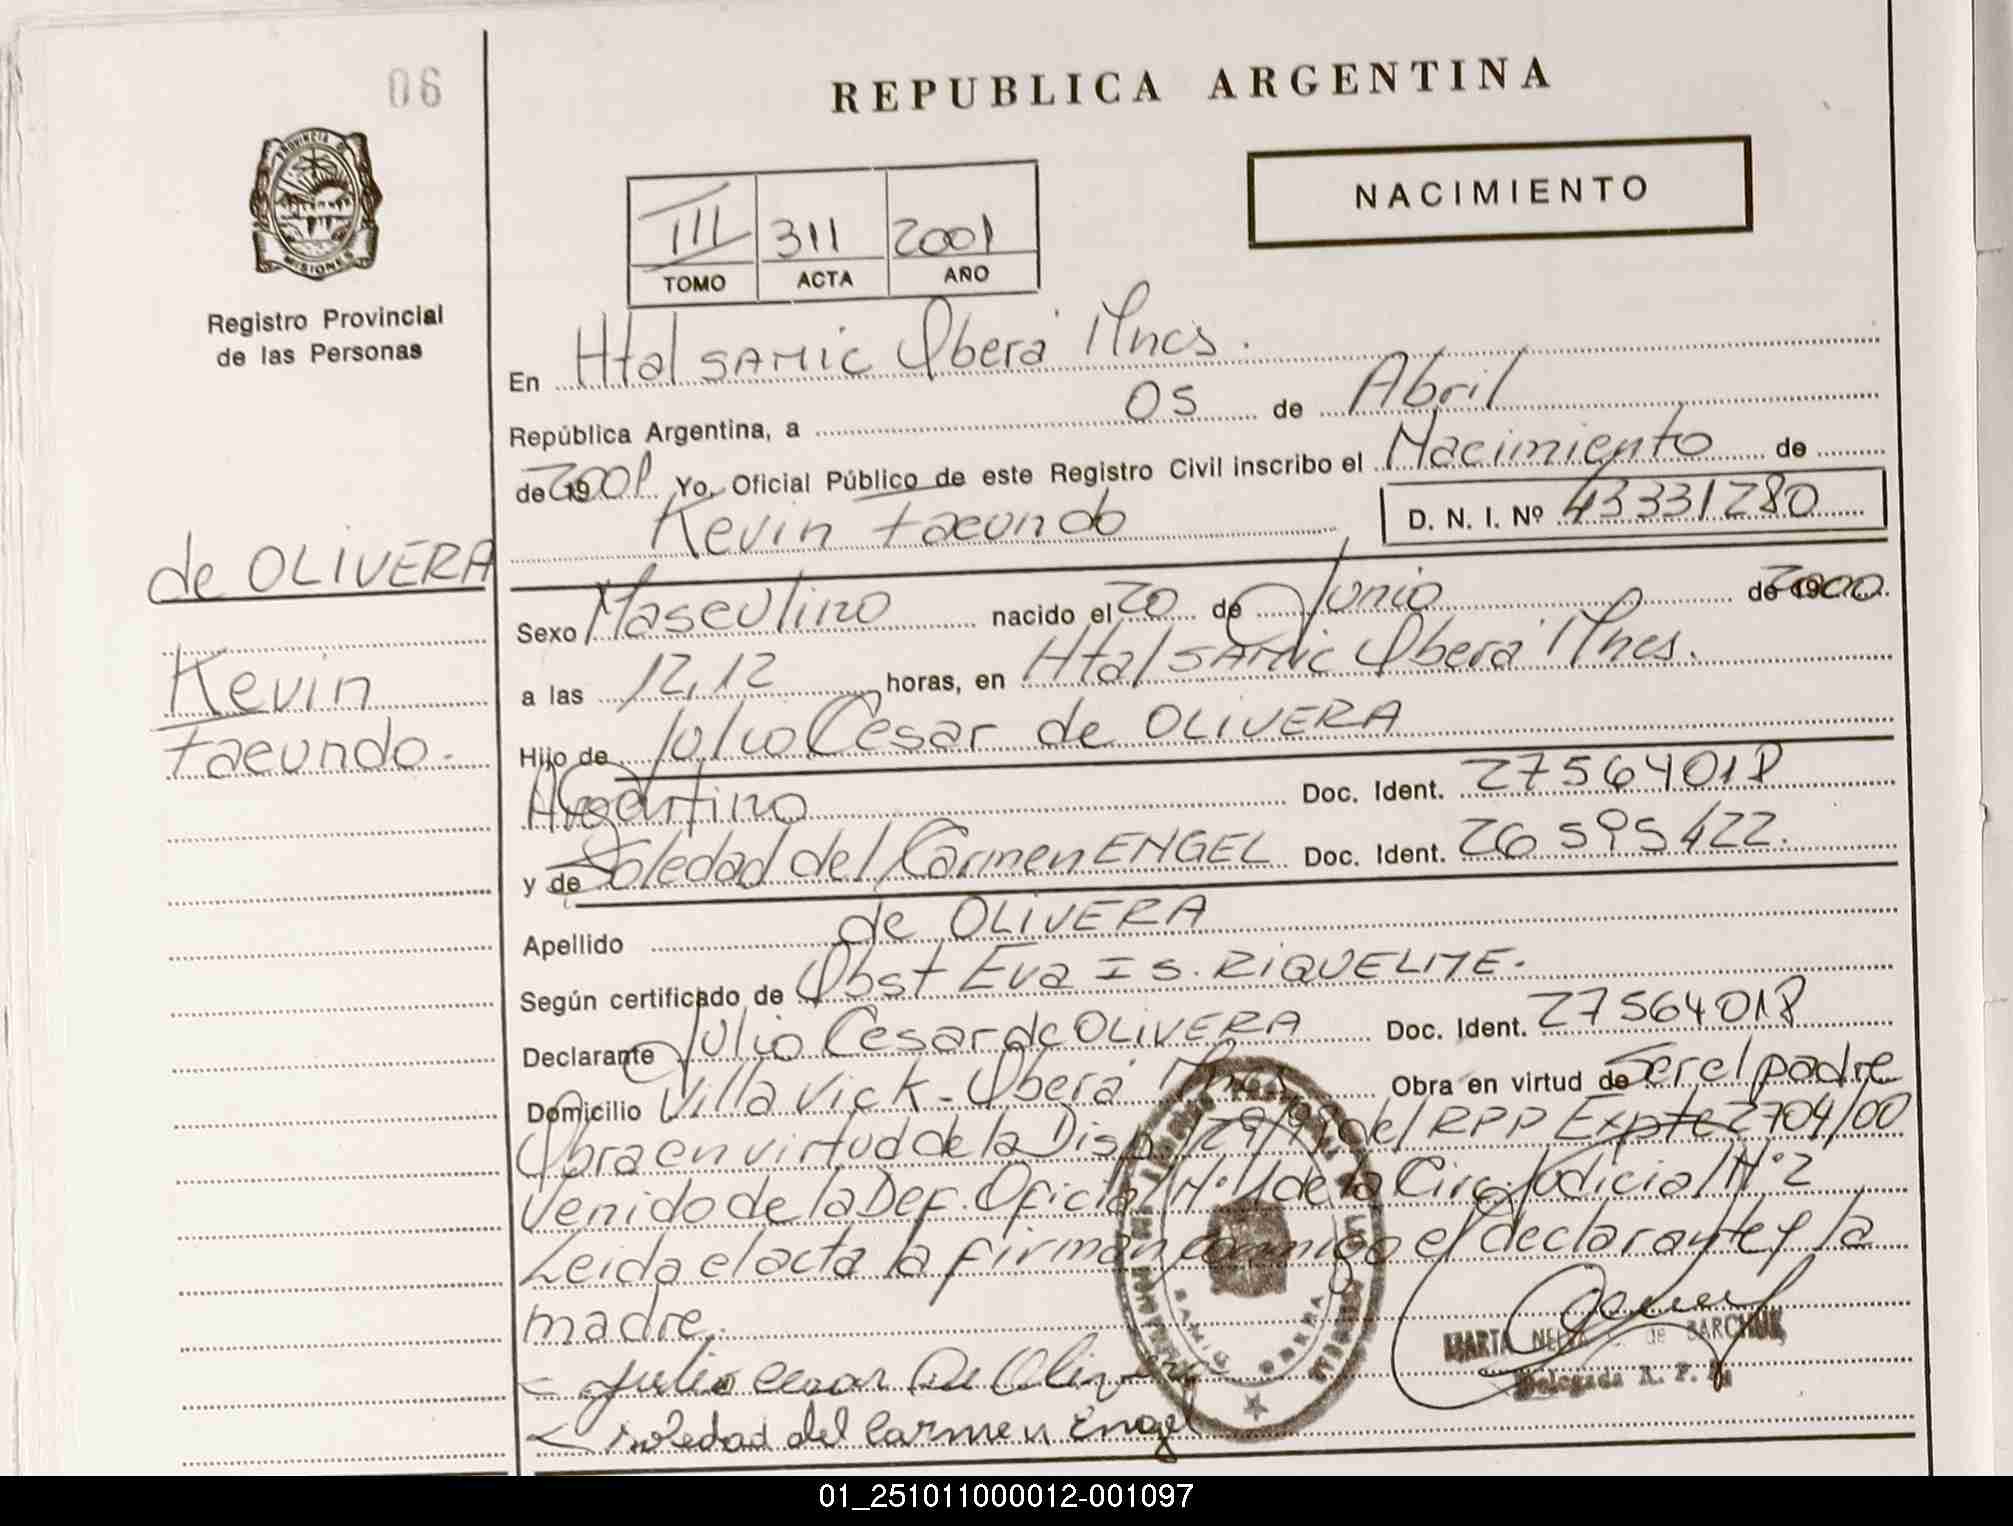 06
REPUBLICA ARGENTINA
NACIMIENTO
PROVINCIA DE
MISIONES
Registro Provincial
de las Personas
III 311 2001
TOMO ACTA AÑO
En Htal SAMIC Oberá Mnes.
República Argentina, a 05 de Abril
de 2001 Yo, Oficial Público de este Registro Civil inscribo el Nacimiento de
Kevin Facundo D. N. I. Nº 43331280
de OLIVERA
Kevin
Facundo.
Sexo Masculino nacido el 20 de Junio de 2000.
a las 12,12 horas, en Htal SAMIC Oberá Mnes.
Hijo de Julio Cesar de OLIVERA
Argentino Doc. Ident. 27564018
y de Soledad del Carmen ENGEL Doc. Ident. 26595422.
Apellido de OLIVERA
Según certificado de Obst Eva Is. RIQUELME.
Declarante Julio Cesar de OLIVERA Doc. Ident. 27564018
Domicilio Villa Vick - Oberá Mnes Obra en virtud de Ser el padre
Obra en virtud de la Disp. del RPP Expte 2704/00
Venido de la Def. Oficial Nº 1 de la Circ Judicial Nº 2
Leida el acta la firman conmigo el declarante y la
madre.
Julio Cesar De Olivera
Soledad del Carmen Engel
SAMIC OBERA
MARTA de BARCHUK
Delegada R. P. P.
01_251011000012-001097